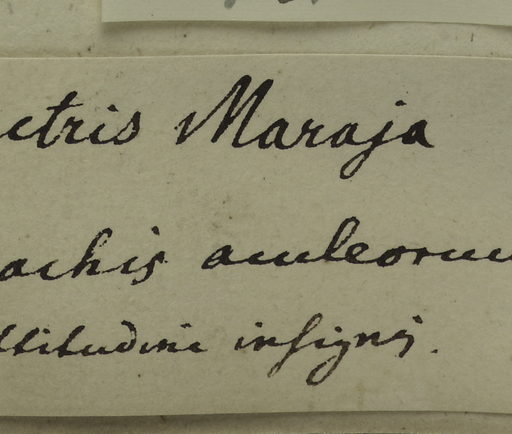 ctris Maraja
achis aculeorum
ltitudine insignis.